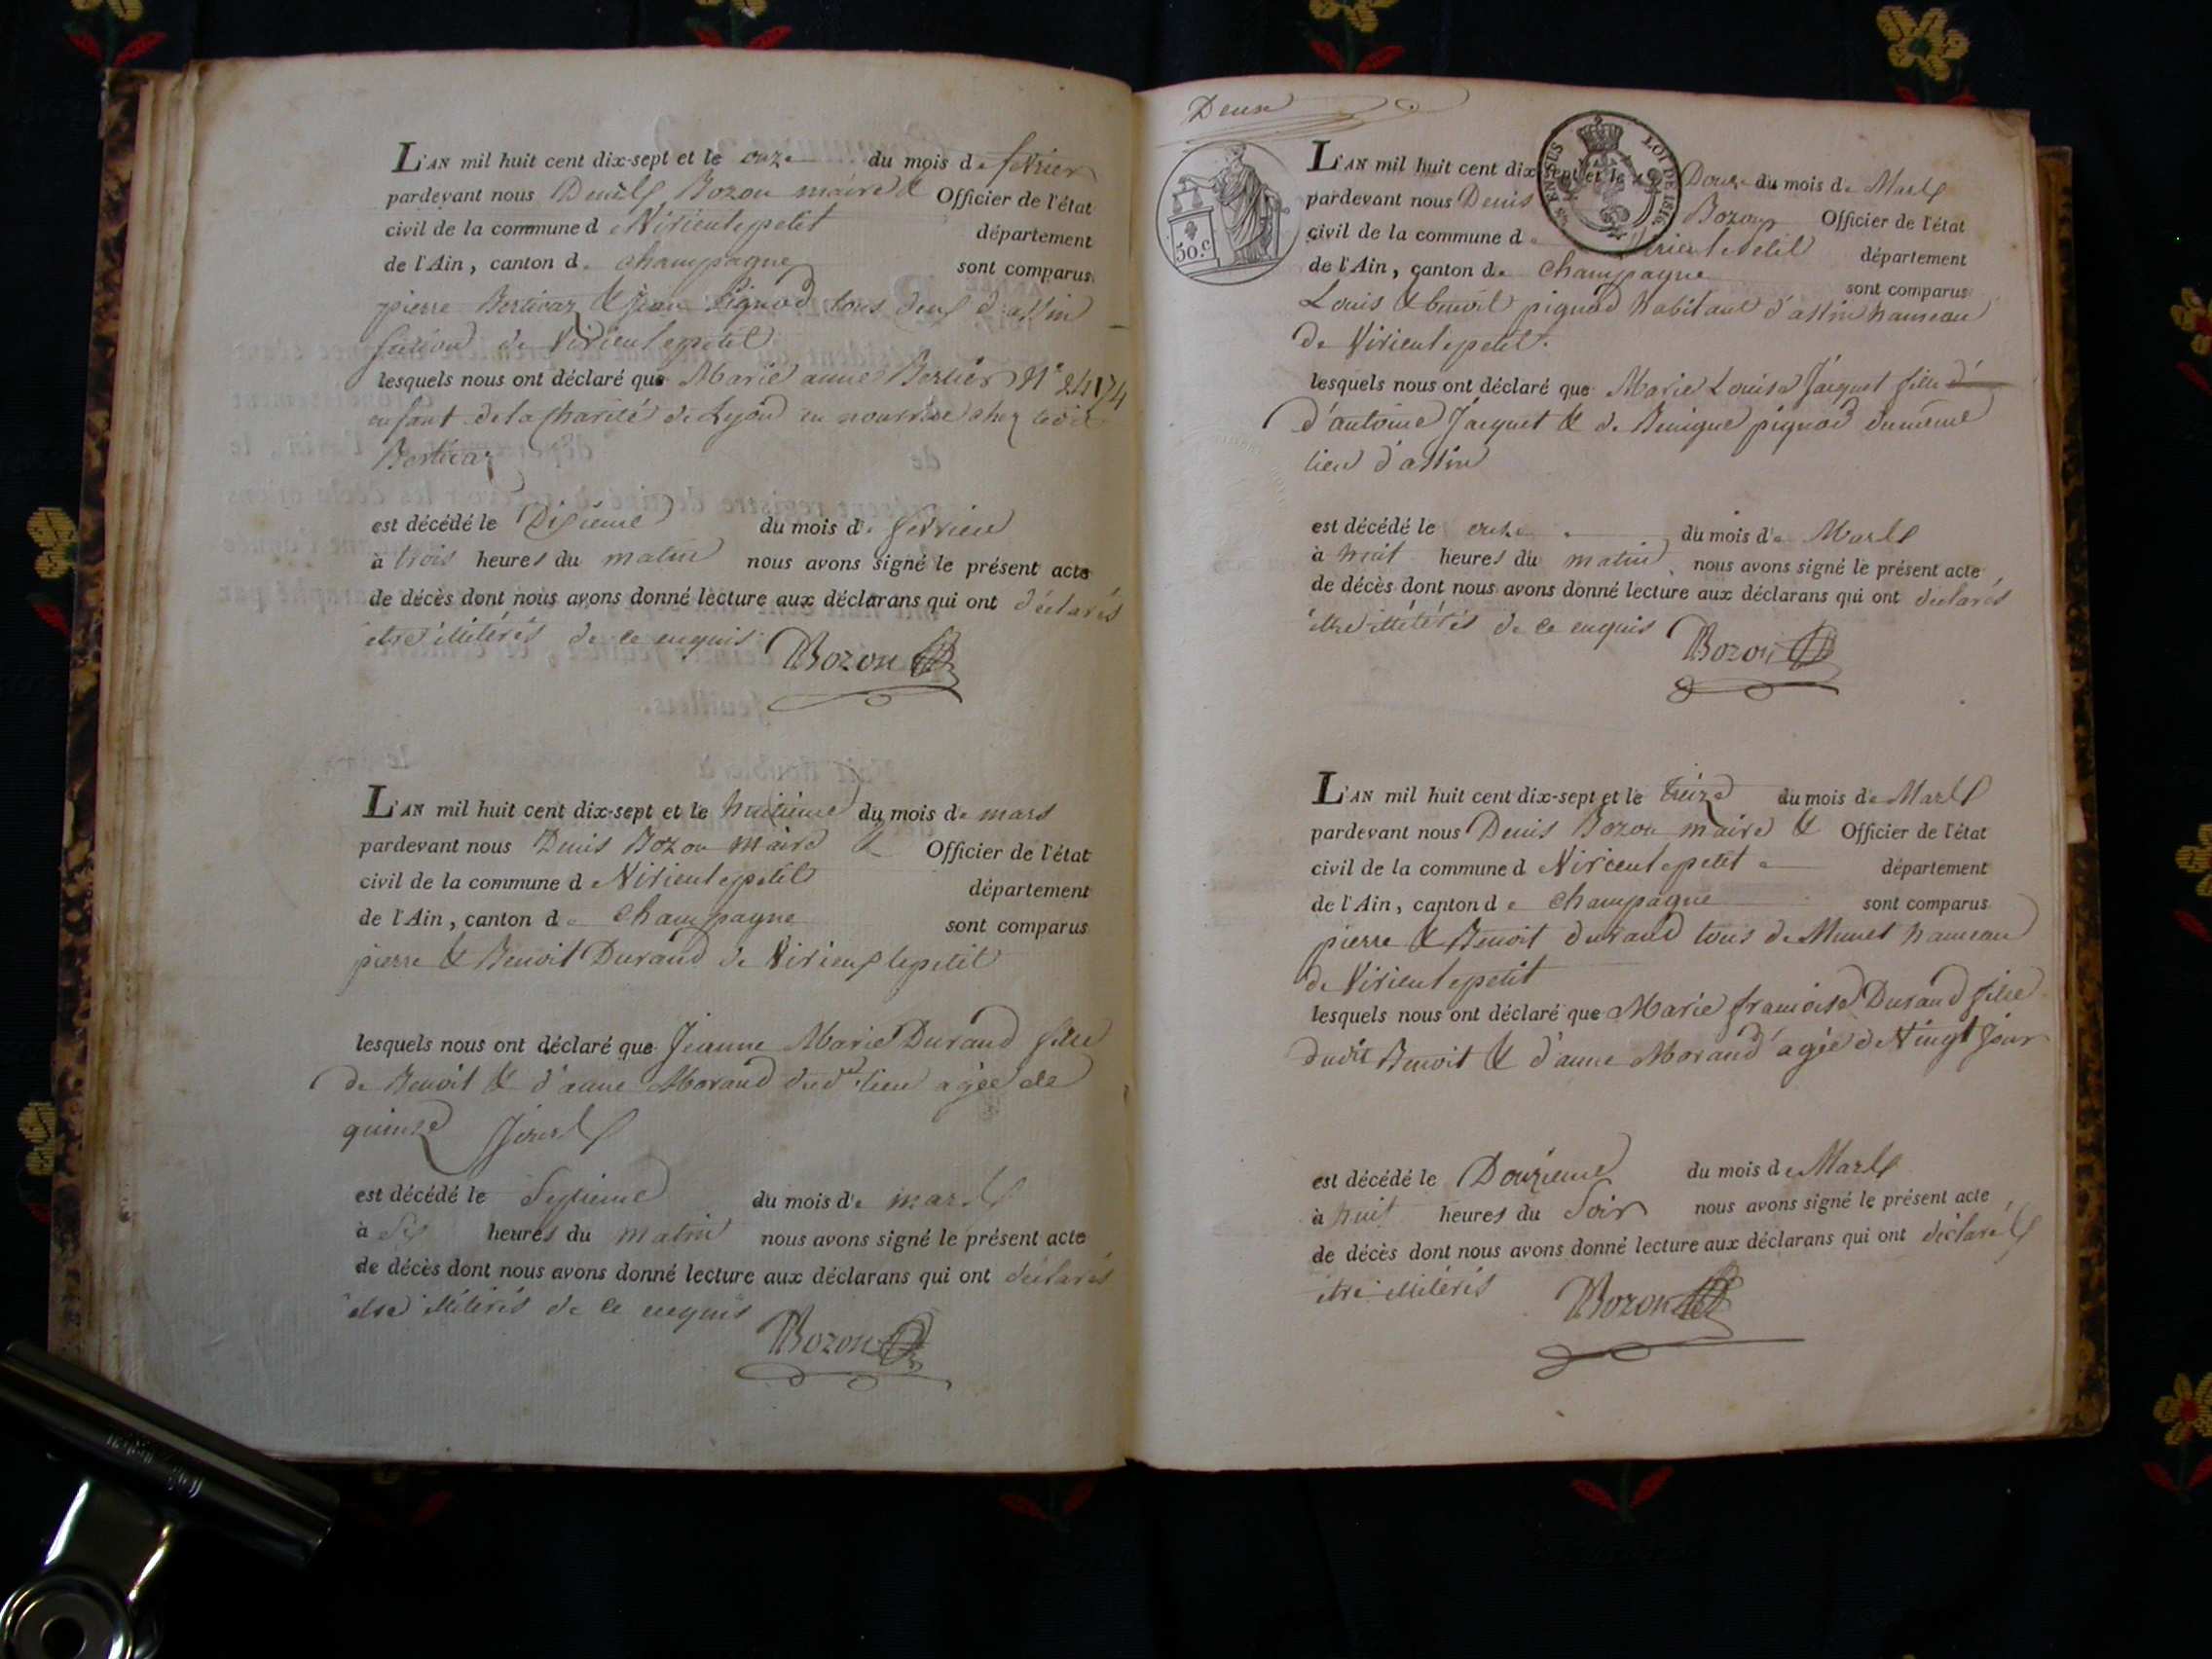 L'AN mil huit cent dix-sept et le onze du mois de fevrier
pardevant nous Denis Bozon maire & Officier de l'état
civil de la commune de Virieulepetit département
de l'Ain, canton de Champagne sont comparus
pierre Berticaz & jean Pignod tous deux d'assin
section de Virieulepetit
lesquels nous ont déclaré que Marie anne Berlier N° 24174
enfant de la Charité de Lyon en nourrise chez ledit
Berticaz
est décédé le Dixieme du mois de fevrier
à trois heures du matin nous avons signé le présent acte
de décès dont nous avons donné lecture aux déclarans qui ont déclarés
etre illitérés de ce enquis Bozon
L'AN mil huit cent dix-sept et le huitieme du mois de mars
pardevant nous Denis Bozon maire & Officier de l'état
civil de la commune de Virieulepetit département
de l'Ain, canton de Champagne sont comparus
pierre & Benoit Durand de Virieux lepetit
lesquels nous ont déclaré que Jeanne Marie Durand fille
de Benoit & d'anne Morand dud.t lieu agée de
quinze Jours
est décédé le Septieme du mois de mars
à Six heures du matin nous avons signé le présent acte
de décès dont nous avons donné lecture aux déclarans qui ont déclarés
etre illitérés de ce enquis
Bozon
Deux
50.c
L'AN mil huit cent dix-sept et le Douze du mois de Mars
LOI DE 1816.
pardevant nous Denis Bozon Officier de l'état
civil de la commune de Virieulepetit département
de l'Ain, canton de Champagne sont comparus
Louis & benoit pignod habitant d'assin hameau
de Virieulepetit.
lesquels nous ont déclaré que Marie Louise Jacquet fille d'
d'antoine Jacquet & de Benigne pignod du même
lieu d'assin
est décédé le onze du mois de Mars
à huit heures du matin nous avons signé le présent acte
de décès dont nous avons donné lecture aux déclarans qui ont déclarés
etre illitérés de ce enquis Bozon
L'AN mil huit cent dix-sept et le treize du mois de Mars
pardevant nous Denis Bozon maire & Officier de l'état
civil de la commune de Virieulepetit département
de l'Ain, canton de Champagne sont comparus
pierre & Benoit durand tous de Munet hameau
de Virieulepetit
lesquels nous ont déclaré que Marie françoise Durand fille
dudit Benoit & d'anne Morand agée de Vingt jour
est décédé le Douzieme du mois de Mars
à huit heures du Soir nous avons signé le présent acte
de décès dont nous avons donné lecture aux déclarans qui ont déclarés
etre illitérés Bozon